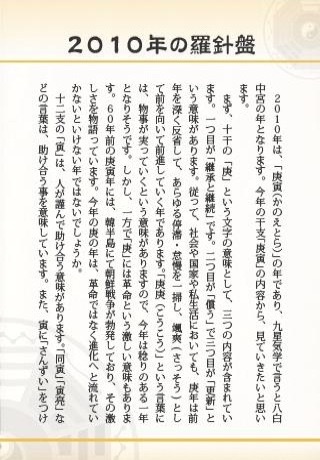 2010年の羅針盤
　2010年は、「庚寅（かのえとら）」の年であり、九星気学で言うと八白
中宮の年となります。今年の干支「庚寅」の内容から、見ていきたいと思い
ます。
　まず、十干の「庚」という文字の意味として、三つの内容が含まれてい
ます。一つ目が「継承と継続」です。二つ目が「償う」で三つ目が「更新」と
いう意味があります。従って、社会や国家や私生活においても、庚年は前
年を深く反省して、あらゆる停滞・怠慢を一掃し、颯爽（さっそう）とし
て前を向いて前進していく年であります。「庚庚（こうこう）」という言葉に
は、物事が実っていくという意味がありますので、今年は稔りのある一年
となりそうです。しかし、一方で「庚」には革命という激しい意味もありま
す。60年前の庚寅年には、韓半島にて朝鮮戦争が勃発しており、その激
しさを物語っています。今年の庚の年は、革命ではなく進化へと流れてい
かないといけない年ではないでしょうか。
　十二支の「寅」は、人が謹んで助け合う意味があります。「同寅」「寅亮」な
どの言葉は、助け合う事を意味しています。また、寅に「さんずい」をつけ